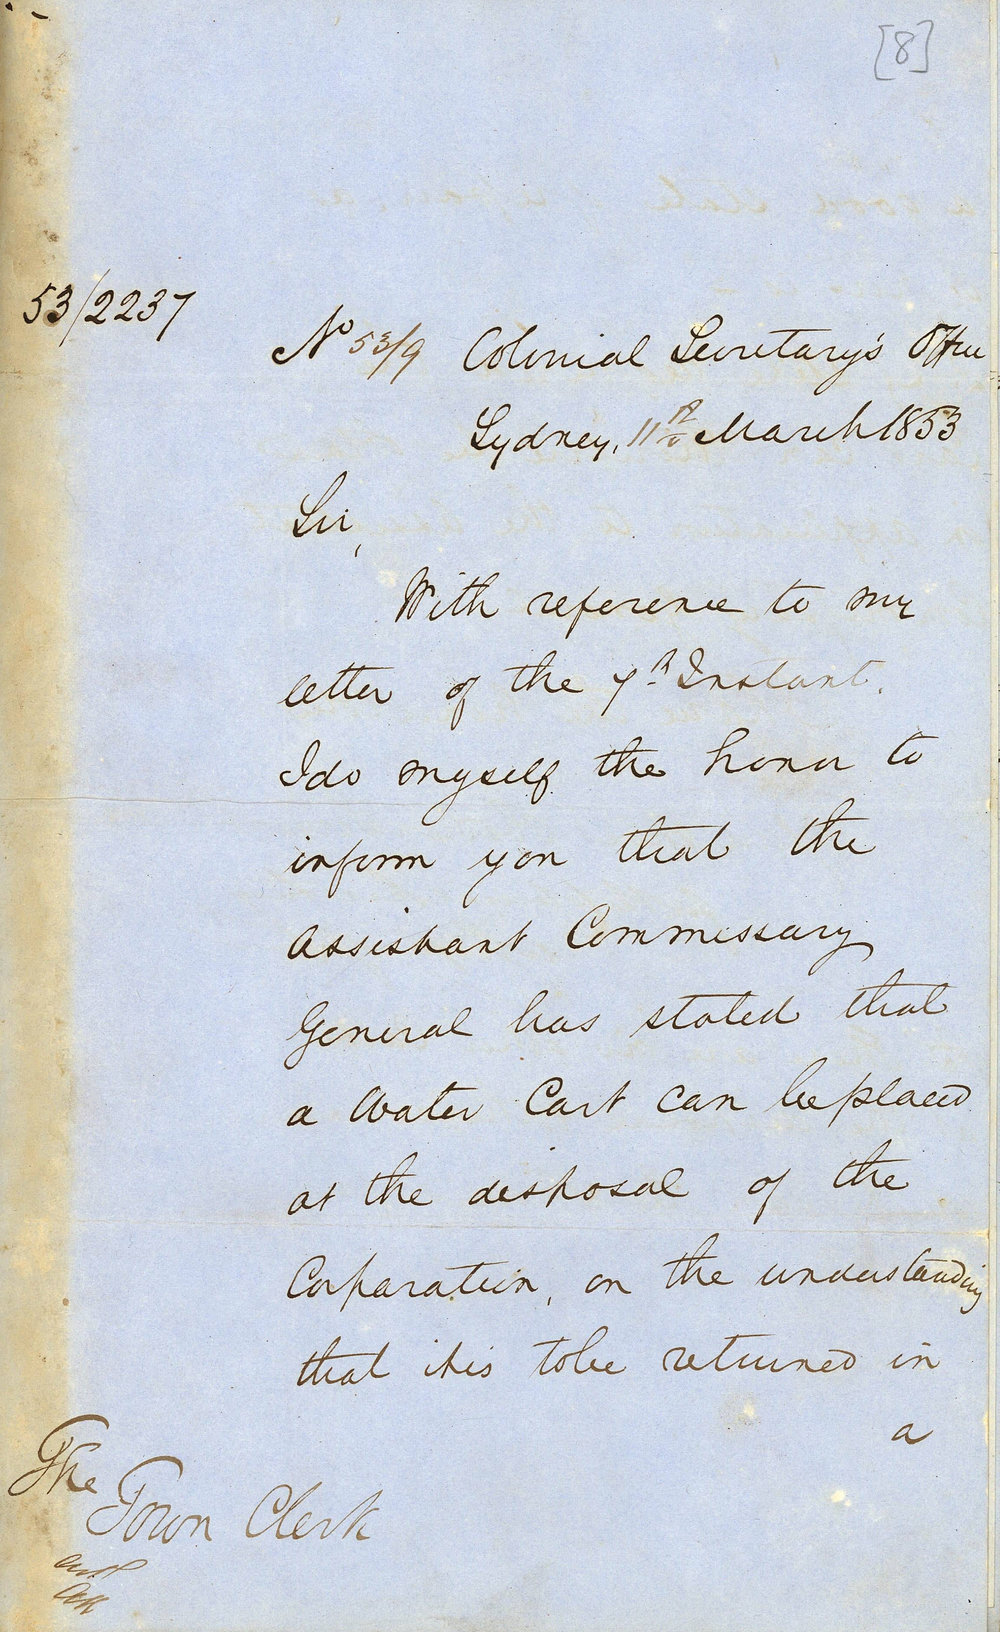 [8]
53/2237
No 53/9 Colonial Secretary's Office
Sydney, 11th March 1853
Sir,
With reference to my
letter of the 7th Instant.
I do myself the honor to
inform you that the
Assistant Commissary
General has stated that
a Water Cart can be placed
at the disposal of the
Corporation, on the understanding
that it is to be returned in
a
The
Town Clerk